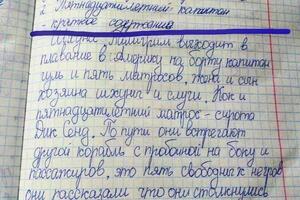 Пятнадцатилетний капитан
- краткое содержание
Шхуна Пилигрим выходит в
плавание в Америку на борту капитан
гуль и пять матросов, жена и сын
хозяина шхуны и слуги. Кок и
пятнадцатилетний матрос - сирота
Дик Сенд. По пути они встречают
другой корабль с пробоиной на боку и
пассажиров, это пять свободных негров
они рассказали что они столкнулись